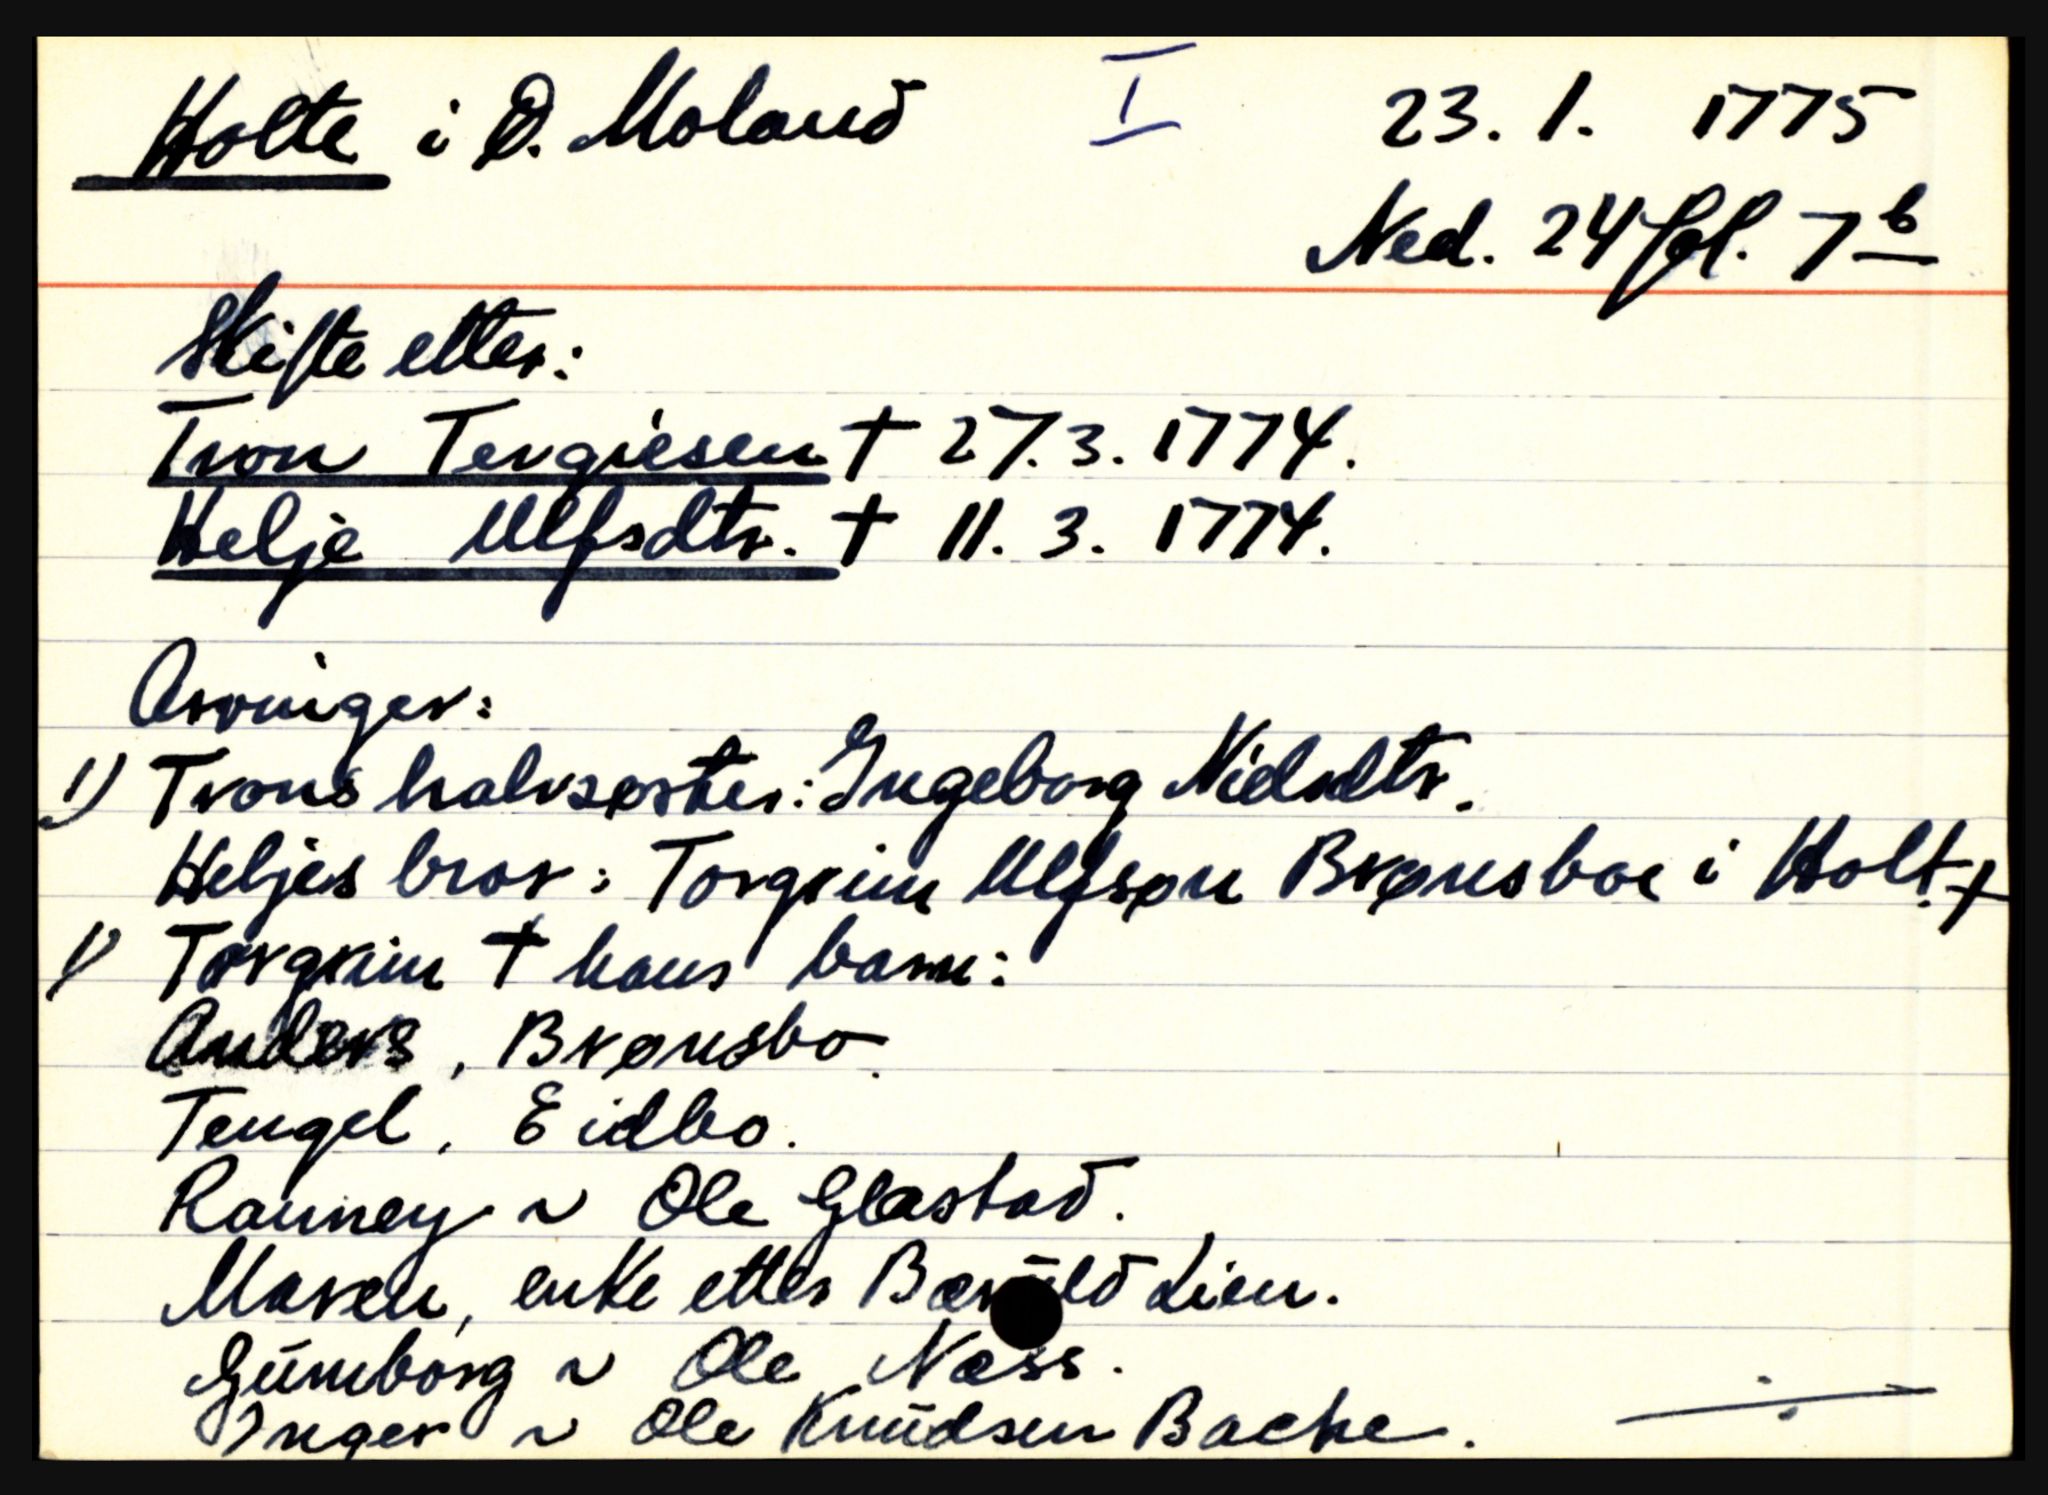 Holte i Ø. Moland I 23. 1. 1775
Ned. 24 fol. 7 b
Skifte etter:
Tron Tergiesen † 27.3. 1774.
Helje Ulfsdtr. † 11. 3. 1774.
Arvinger:
1) Trons halvsøster: Ingeborg Nielsdtr.
Heljes bror: Torgrim Ulfsøn Brønsboe i Holt. †
1) Torgrim † hans barn:
Anders, Brønsbo.
Tengel, Eidbo.
Ranney ~ Ole Glastad.
Maren, enke etter Lien.
Gúnnborg ~ Ole Næss.
Inger ~ Ole Knúdsen Bache.